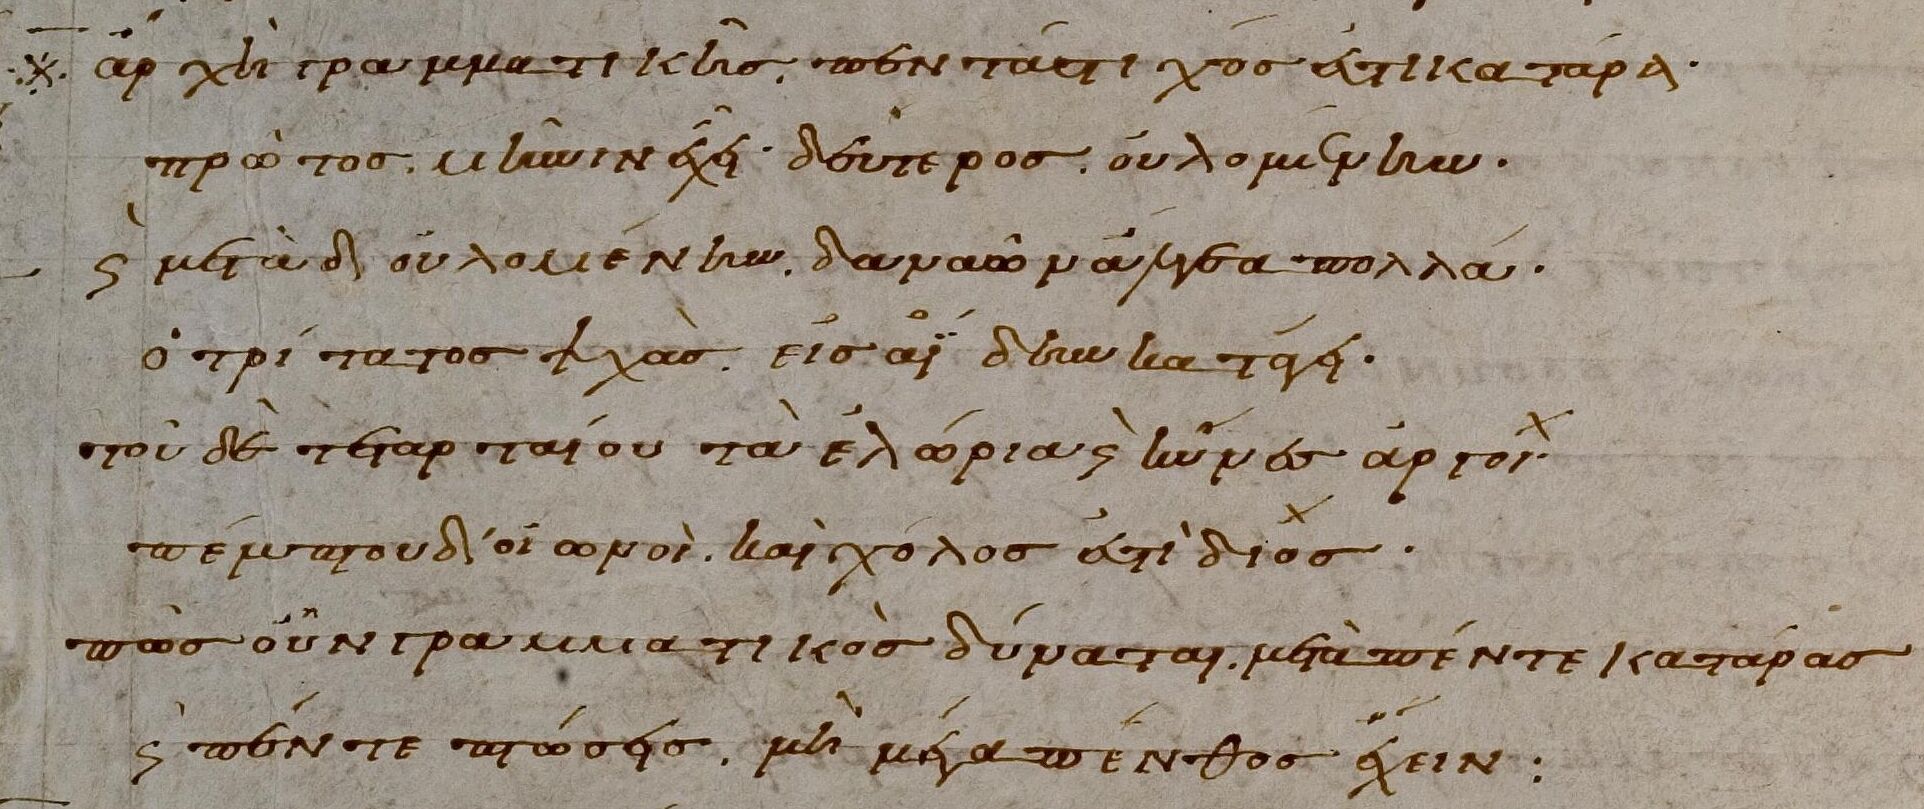 ἀρχὴ γραμματικῆς, πεντάστιχός ἐστι κατάρα·
πρῶτος, μῆνιν ἔχει· δεύτερος, οὐλομένην·
ϗ μετὰ δ' οὐλομένην, δαναῶν ἄλγεα πολλά·
ὁ τρίτατος ψυχὰς, εἰς ἀΐδην κατάγει·
τοῦ δὲ τεταρταίου τὰ ἑλώρια ϗ κύνες ἀργοί·
πέμπτου δ' οἰωνοὶ, καὶ χόλος ἐστὶ διός·
πῶς οὖν γραμματικὸς δύναται, μετὰ πέντε κατάρας
ϗ πέντε πτώσεις, μὴ μέγα πένθος ἔχειν: